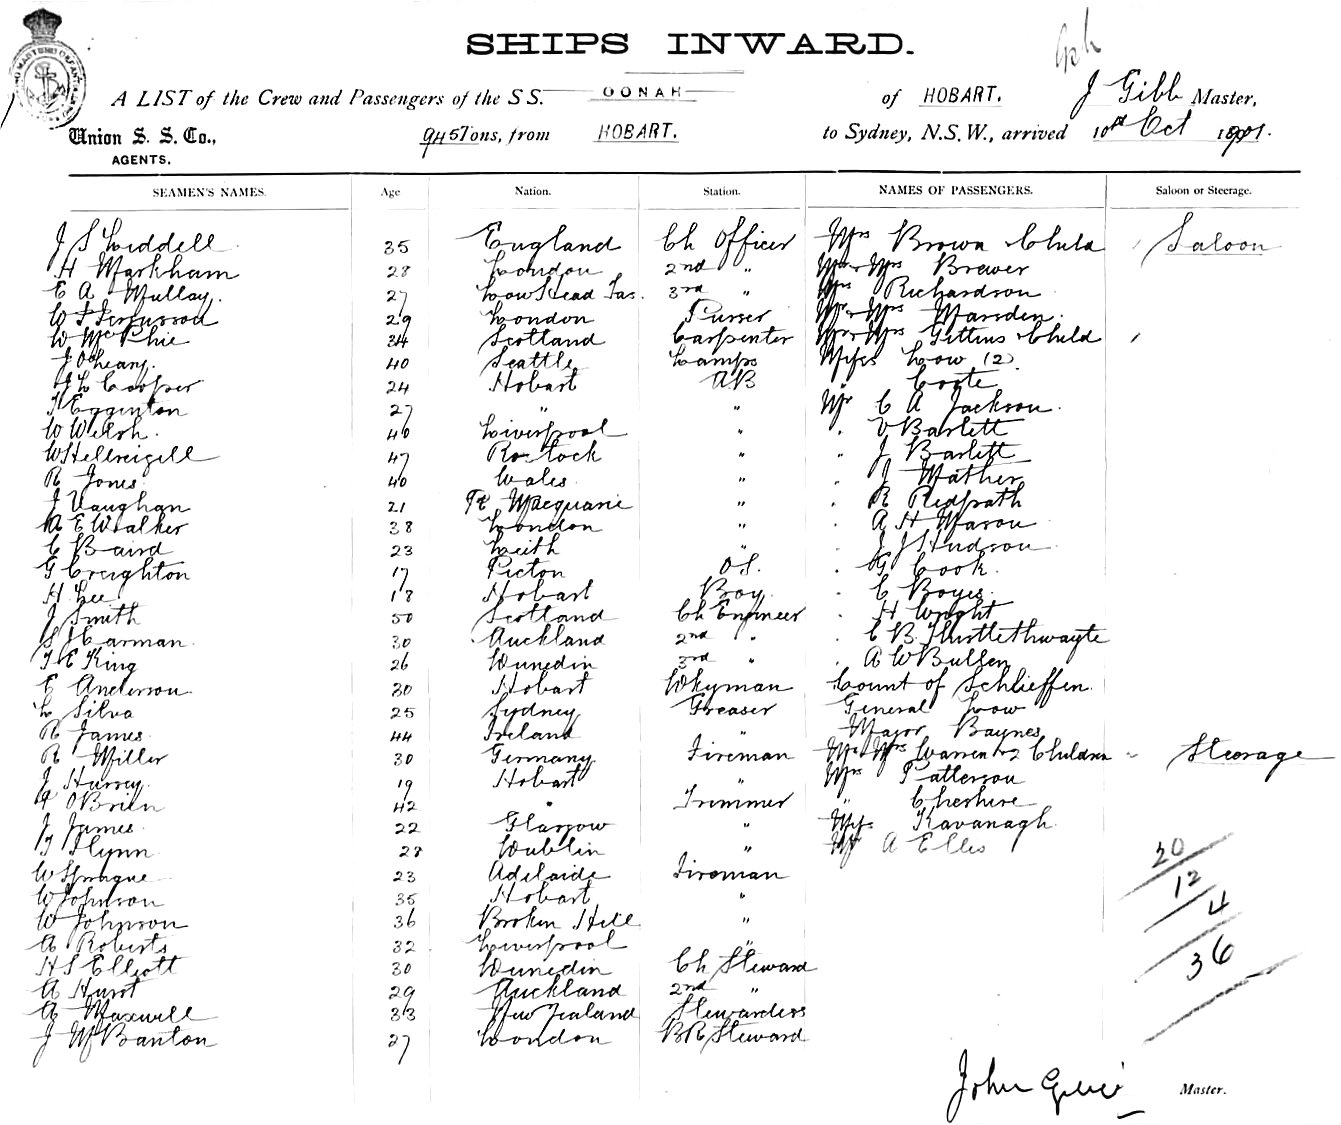 SHIPS INWARD.
A LIST of the Crew and Passengers of the S S. OONAH of HOBART. J Gibb Master,
Union S. S. Co., 945 Tons, from HOBART. to Sydney, N.S.W., arrived 10th Oct 1901.
AGENTS.
SEAMEN'S NAMES. Age Nation. Station. NAMES OF PASSENGERS. Saloon or Steerage.
J S Liddell 35 England Ch Officer Mrs Brown Child Saloon
H Markham 28 London 2nd " Mr Mrs Brewer
E A Mullay. 27 Low Head Tas. 3rd " Mrs Richardson
W F Fergusson 29 London Purser Mr Mrs Marsden.
W McPhie 34 Scotland Carpenter Mr Mrs Gittins Child
J Oheary. 40 Seattle Lamps Misses Low (2)
Cooper 24 Hobart AB " Coote
T Egginton 27 " " Mr C A Jackson.
W Welsh. 40 Liverpool " " V Bartlett
W Hellreigill 47 Rostock " " J Bartlett
R Jones 40 Wales " " J Mather
J Vaughan 21 Pt Macquarie " " R Ridpath
A E Walker 38 London " " A H Mason
C Baird 23 Leith " " J J Hudson
G Creighton 17 Picton OS. " G Cook.
H Lee 18 Hobart Boy. " C Boyes.
J Smith 50 Scotland Ch Engineer " H Wright
S Harman 30 Auckland 2nd " " C B Thistlethwayte
T E King 26 Dunedin 3rd " " A W Bullen
E Anderson. 30 Hobart Wkyman Count of Schlieffen.
L Silva 25 Sydney Greaser General Low
R James 44 Ireland " Major Baynes
R Miller 30 Germany. Fireman Mr Mrs Warren & 2 Children " Steerage
J Hursey. 19 Hobart " Mrs Patterson
O'Brien 42 " Trimmer " Cheshire
J James. 22 Glasgow " Miss Kavanagh
T Flynn 28 Dublin " Mr A Ellis
W Sprague 23 Adelaide Fireman
W Johnson 35 Hobart "
W Johnson 36 Broken Hill "
A Roberts 32 Liverpool "
H S Elliott 30 Dunedin Ch Steward
A Hurst 29 Auckland 2nd "
A Maxwell 33 New Zealand Stewardess
J McBanton 27 London BR Steward
20
12
4
36
John Master.